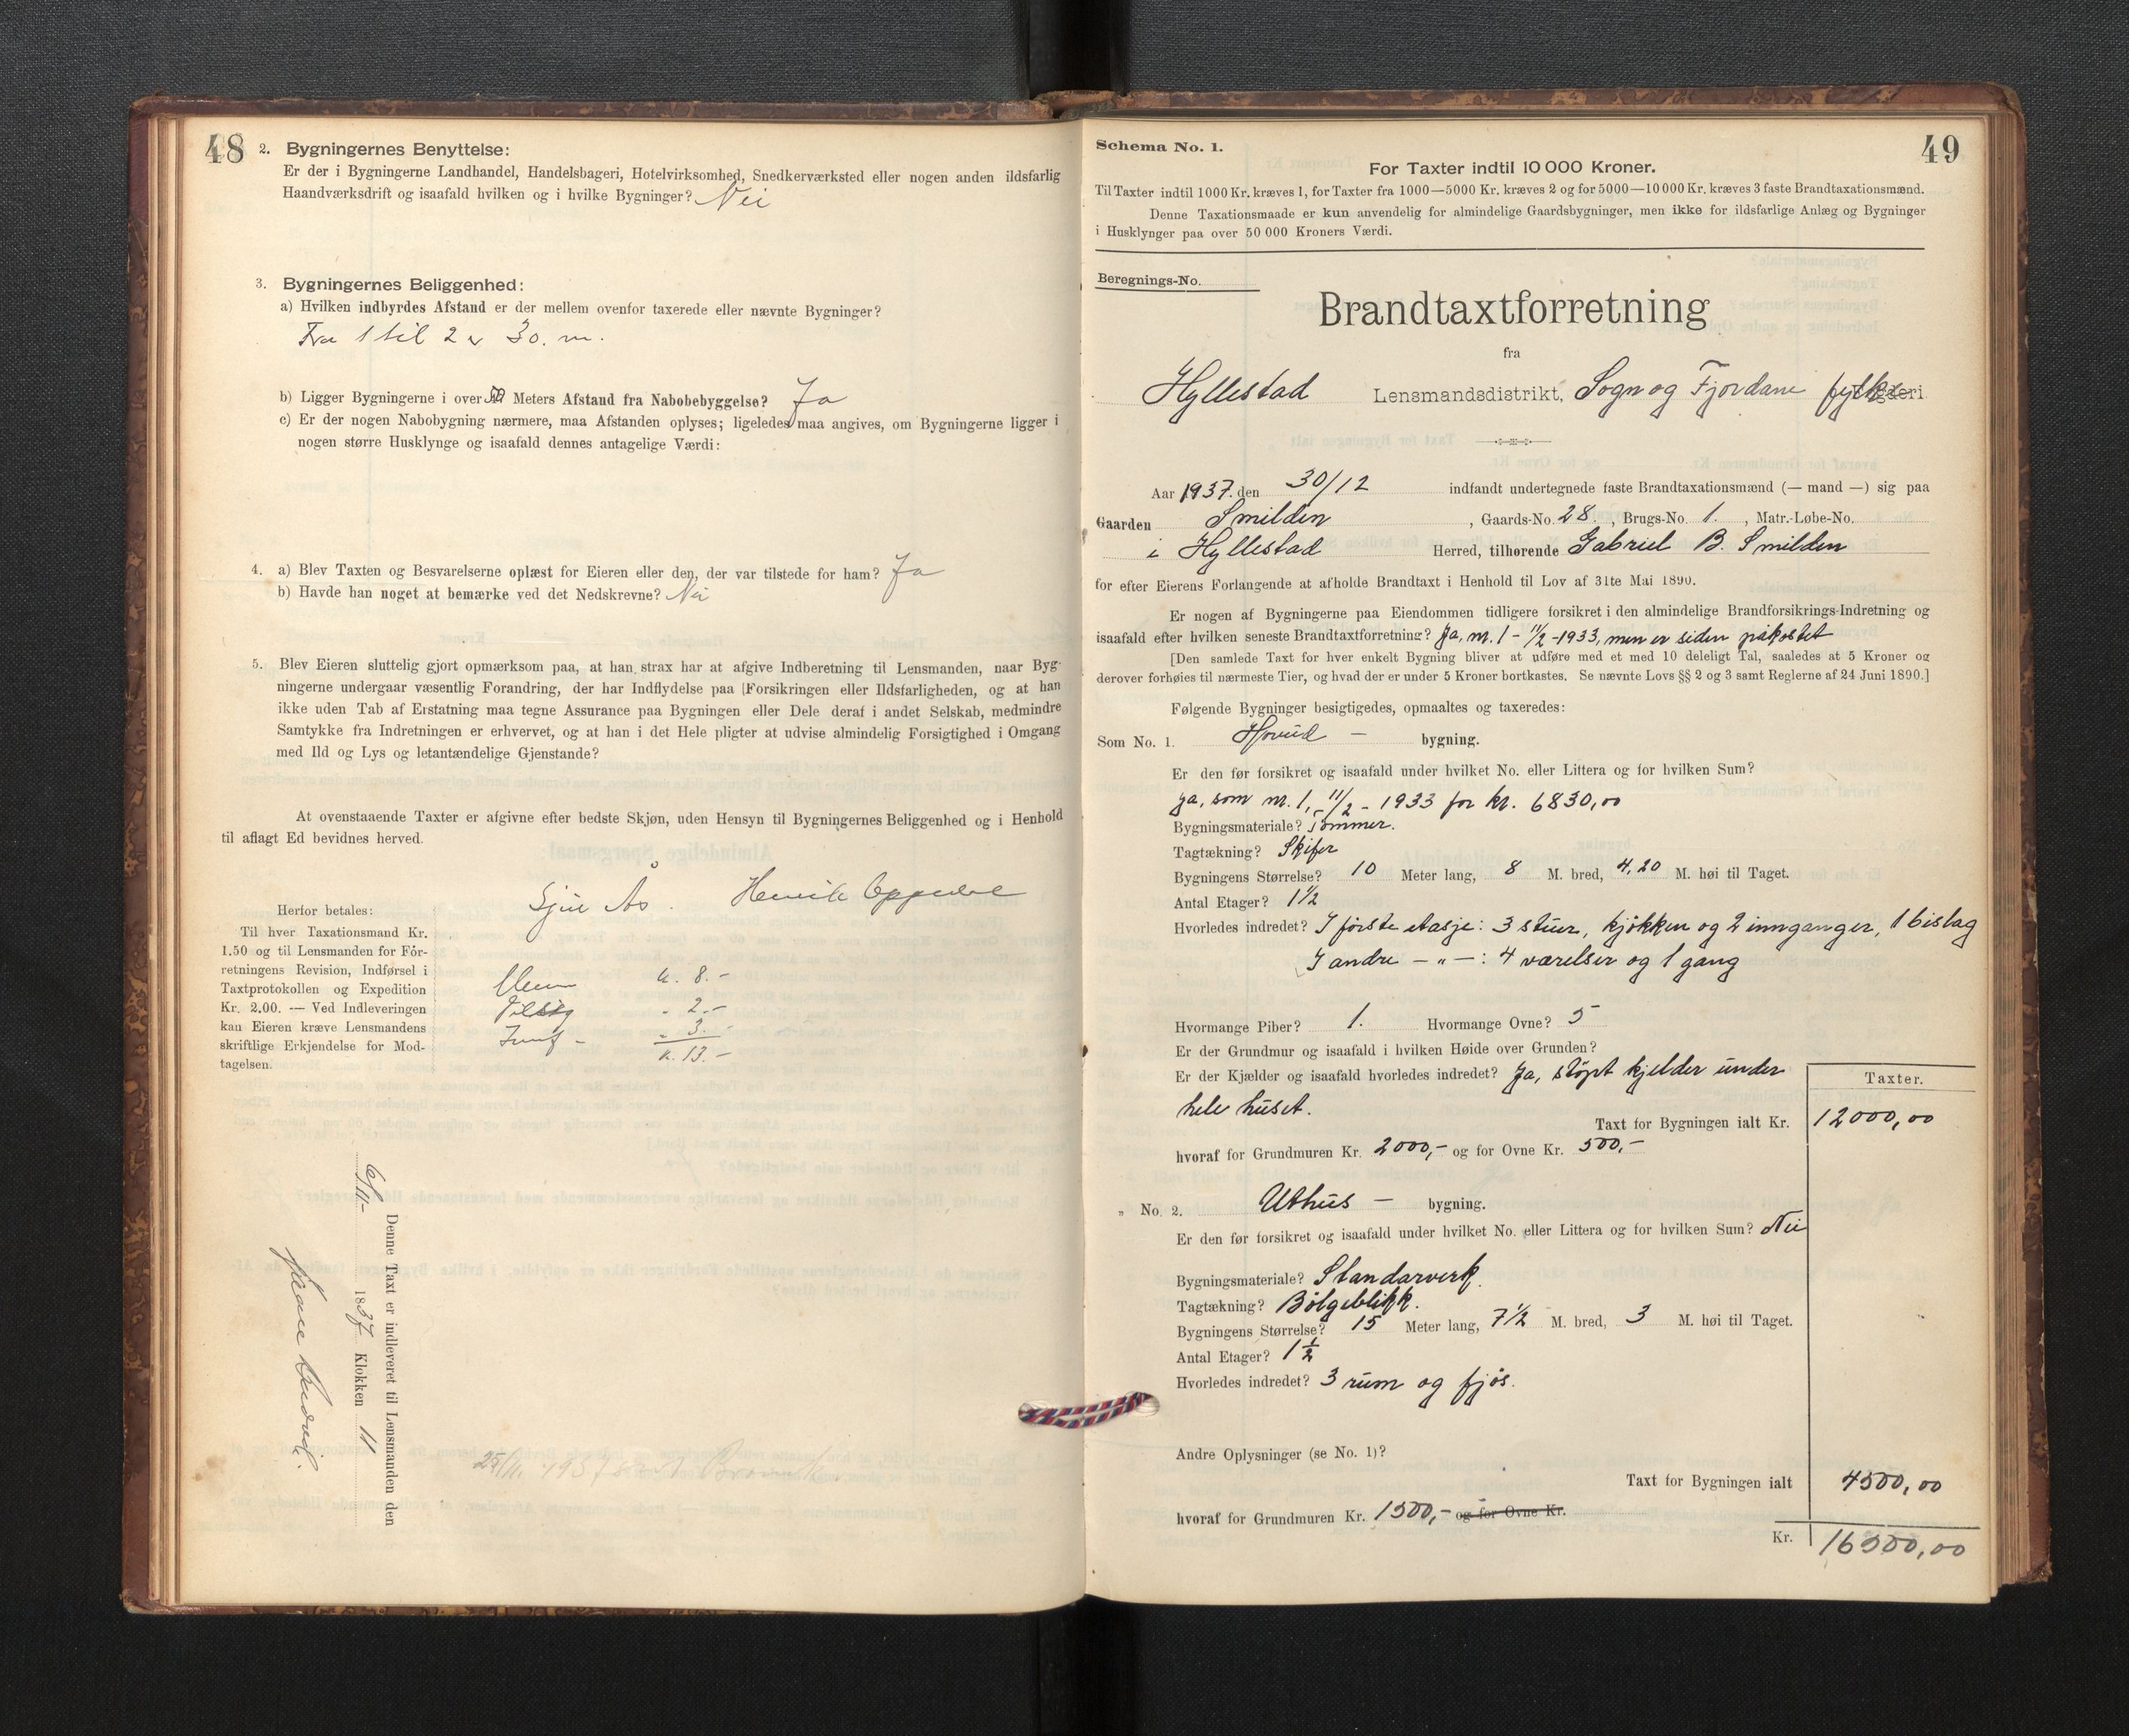 48
2. Bygningernes Benyttelse:
Er der i Bygningerne Landhandel, Handelsbageri, Hotelvirksomhed, Snedkerværksted eller nogen anden ildsfarlig
Haandværksdrift og isaafald hvilken og i hvilke Bygninger? Nei
3. Bygningernes Beliggenhed:
a) Hvilken indbyrdes Afstand er der mellem ovenfor taxerede eller nævnte Bygninger?
Fra 1 til 2 er 30. m.
b) Ligger Bygningerne i over Meters Afstand fra Nabobebyggelse? Ja
c) Er der nogen Nabobygning nærmere, maa Afstanden oplyses; ligeledes maa angives, om Bygningerne ligger i
nogen større Husklynge og isaafald dennes antagelige Værdi:
4. a) Blev Taxten og Besvarelserne oplæst for Eieren eller den, der var tilstede for ham? Ja
b) Havde han noget at bemærke ved det Nedskrevne? Nei
5. Blev Eieren sluttelig gjort opmærksom paa, at han strax har at afgive Indberetning til Lensmanden, naar Byg-
ningerne undergaar væsentlig Forandring, der har Indflydelse paa Forsikringen eller Ildsfarligheden, og at han
ikke uden Tab af Erstatning maa tegne Assurance paa Bygningen eller Dele deraf i andet Selskab, medmindre
Samtykke fra Indretningen er erhvervet, og at han i det Hele pligter at udvise almindelig Forsigtighed i Omgang
med Ild og Lys og letantændelige Gjenstande?
At ovenstaaende Taxter er afgivne efter bedste Skjøn, uden Hensyn til Bygningernes Beliggenhed og i Henhold
til aflagt Ed bevidnes herved.
Sjur Ås. Henrik
Herfor betales:
Til hver Taxationsmand Kr.
1.50 og til Lensmanden for For-
retningens Revision, Indførsel i
Taxtprotokollen og Expedition
Kr. 2.00. — Ved Indleveringen
kan Eieren kræve Lensmandens
skriftlige Erkjendelse for Mod-
tagelsen.
k. 8.-
- 2.-
- 3.-
k. 13.-
Denne Taxt er indleveret til Lensmanden den
6/11- 1837 Klokken 11
25/11. 1937
49
Schema No. 1.
For Taxter indtil 10 000 Kroner.
Til Taxter indtil 1000 Kr. kræves 1, for Taxter fra 1000—5000 Kr. kræves 2 og for 5000—10 000 Kr. kræves 3 faste Brandtaxationsmænd.
Denne Taxationsmaade er kun anvendelig for almindelige Gaardsbygninger, men ikke for ildsfarlige Anlæg og Bygninger
i Husklynger paa over 50 000 Kroners Værdi.
Beregnings-No.
Brandtaxtforretning
fra
Hyllestad Lensmandsdistrikt, Sogn og Fjordane fylke
Aar 1937. den 30/12 indfandt undertegnede faste Brandtaxationsmænd (— mand —) sig paa
Gaarden Smilden , Gaards-No. 28. , Brugs-No. 1. , Matr.-Løbe-No.
i Hyllestad Herred, tilhørende Gabriel B. Smilden
for efter Eierens Forlangende at afholde Brandtaxt i Henhold til Lov af 31te Mai 1890.
Er nogen af Bygningerne paa Eiendommen tidligere forsikret i den almindelige Brandforsikrings-Indretning og
isaafald efter hvilken seneste Brandtaxtforretning? Ja, nr. 1 - 11/2 - 1933, men er siden påkostet
[Den samlede Taxt for hver enkelt Bygning bliver at udføre med et med 10 deleligt Tal, saaledes at 5 Kroner og
derover forhøies til nærmeste Tier, og hvad der er under 5 Kroner bortkastes. Se nævnte Lovs §§ 2 og 3 samt Reglerne af 24 Juni 1890.]
Følgende Bygninger besigtigedes, opmaaltes og taxeredes:
Som No. 1. Hovud — bygning.
Er den før forsikret og isaafald under hvilket No. eller Littera og for hvilken Sum?
Ja, som nr. 1, - 11/2 - 1933 for kr. 6830,00
Bygningsmateriale? Tømmer.
Tagtækning? Skifer
Bygningens Størrelse? 10 Meter lang, 8 M. bred, 4,20 M. høi til Taget.
Antal Etager? 1 1/2
Hvorledes indredet? I første etasje: 3 stuer, kjøkken og 2 innganger, 1 bislag
I andre — " —: 4 værelser og 1 gang
Hvormange Piber? 1. Hvormange Ovne? 5
Er der Grundmur og isaafald i hvilken Høide over Grunden?
Er der Kjælder og isaafald hvorledes indredet? Ja, støpt kjelder under
hele huset.
Taxter.
Taxt for Bygningen ialt Kr. 12000,00
hvoraf for Grundmuren Kr. 2000,- og for Ovne Kr. 500,-
" No. 2. Uthus — bygning.
Er den før forsikret og isaafald under hvilket No. eller Littera og for hvilken Sum? Nei
Bygningsmateriale? Standarverk.
Tagtækning? Bølgeblikk.
Bygningens Størrelse? 15 Meter lang, 7 1/2 M. bred, 3 M. høi til Taget.
Antal Etager? 1 1/2
Hvorledes indredet? 3 rum og fjøs.
Andre Oplysninger (se No. 1)?
Taxt for Bygningen ialt 4500,00
hvoraf for Grundmuren Kr. 1500,- og for Ovne Kr.
Kr. 16500,00